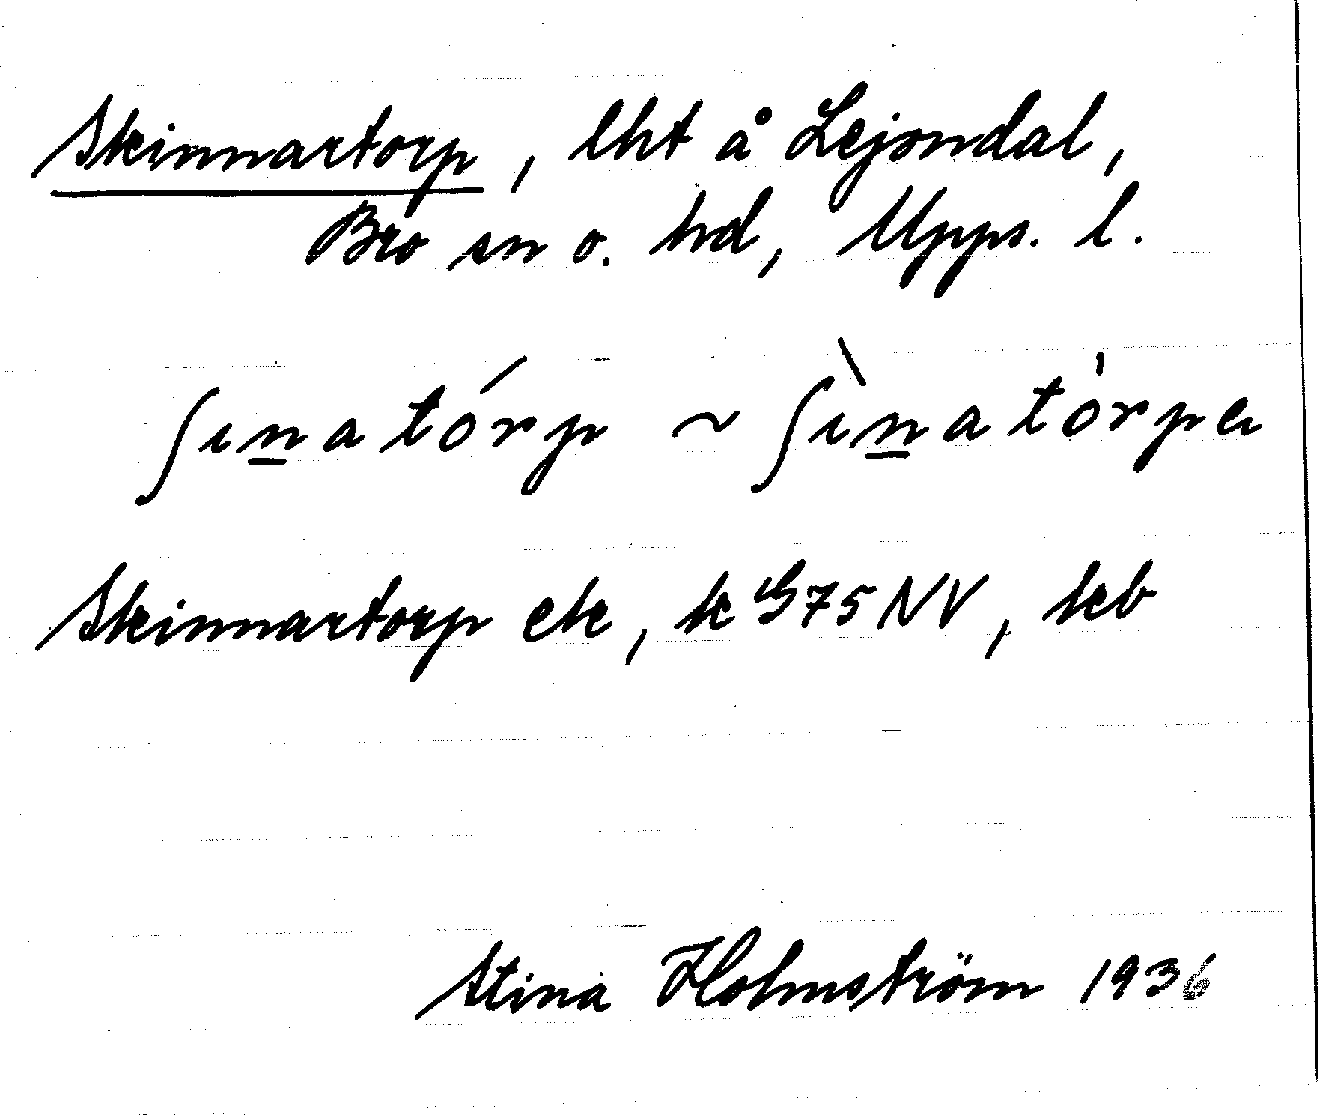 Skinnartorp, lht å Lejondal,
Bro sn o. hd, Upps. l.
ʃɩn̲a tórp ~ ʃɩ̀n̲a tòrpa
Skinnartorp ek, k G75NV, kcb
Stina Holmström 1936